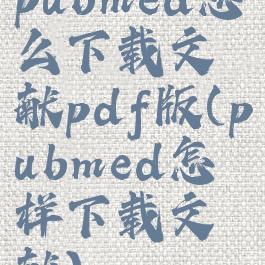 pubmed怎
么下载文
献pdf版(p
ubmed怎
样下载文
献)